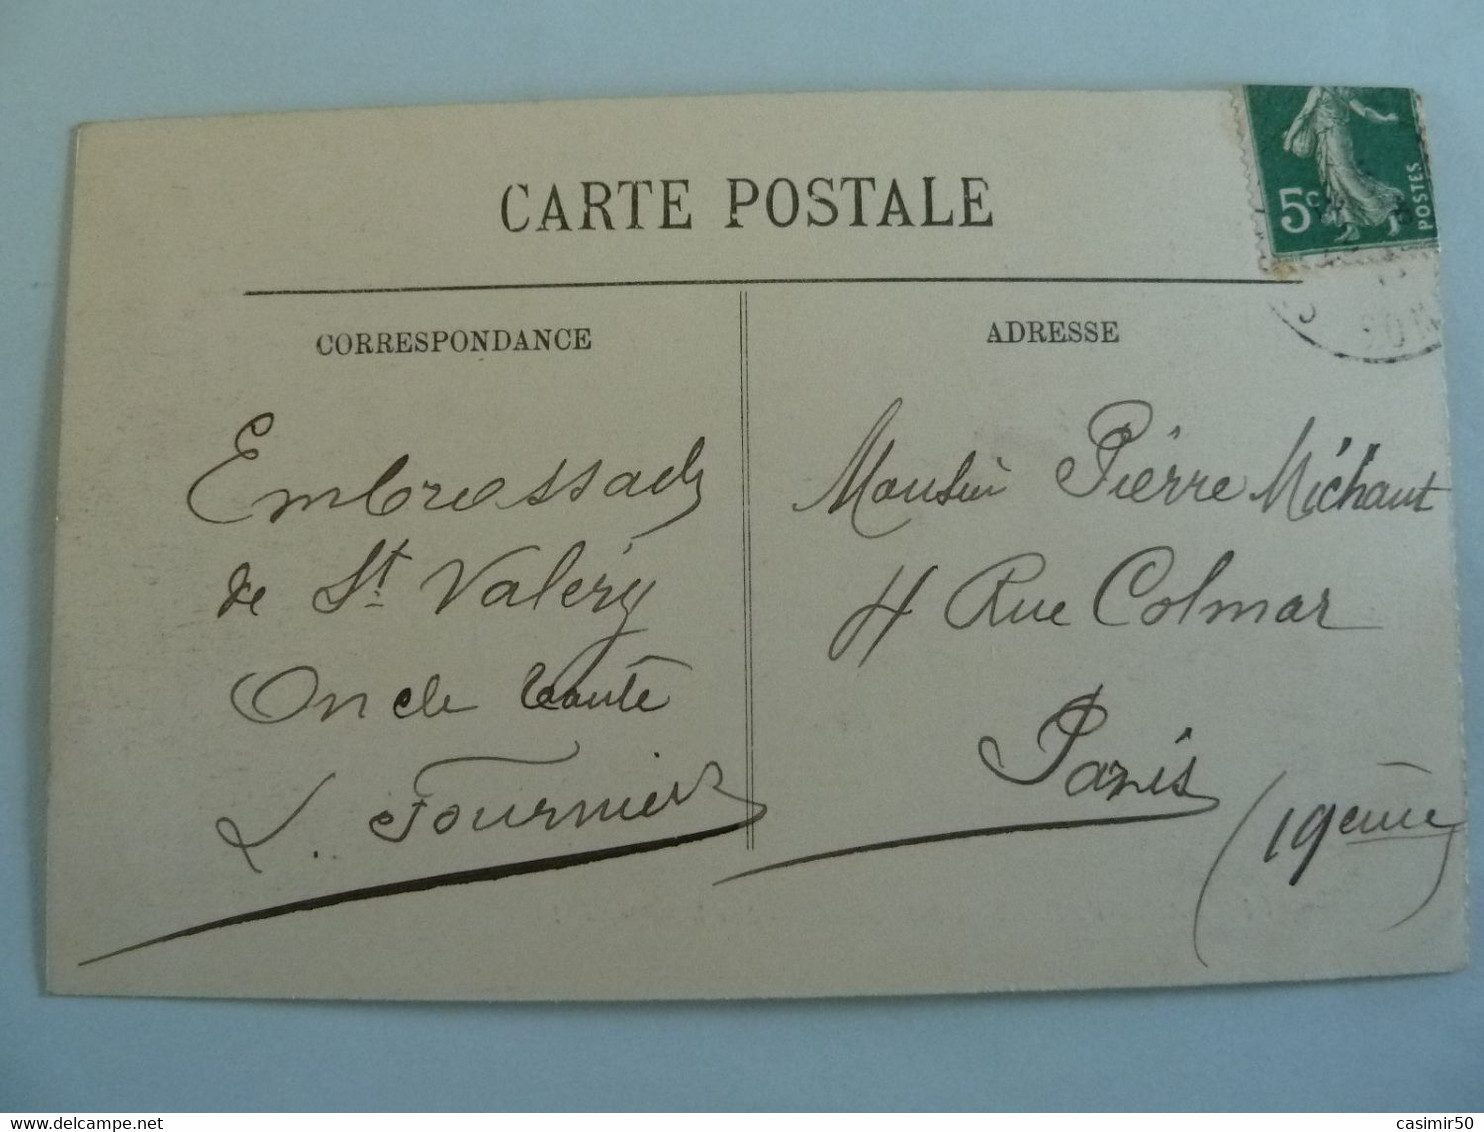 CARTE POSTALE
5c
POSTES
CORRESPONDANCE
Embrassades
de St. Valéry
Oncle tante
L. Fournier
ADRESSE
Monsieur Pierre Michaut
4 Rue Colmar
Paris
(19eme)
casimir50